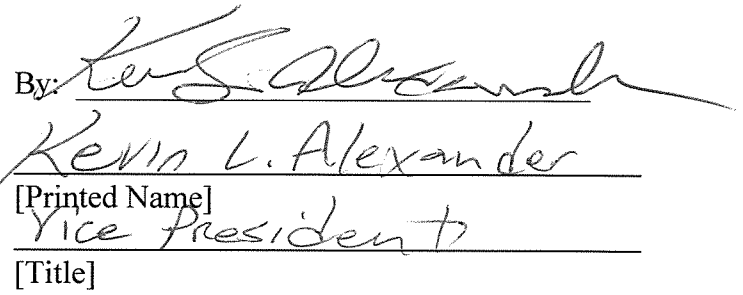 By: Kevin L. Alexander
Kevin L. Alexander
[Printed Name]
Vice President
[Title]